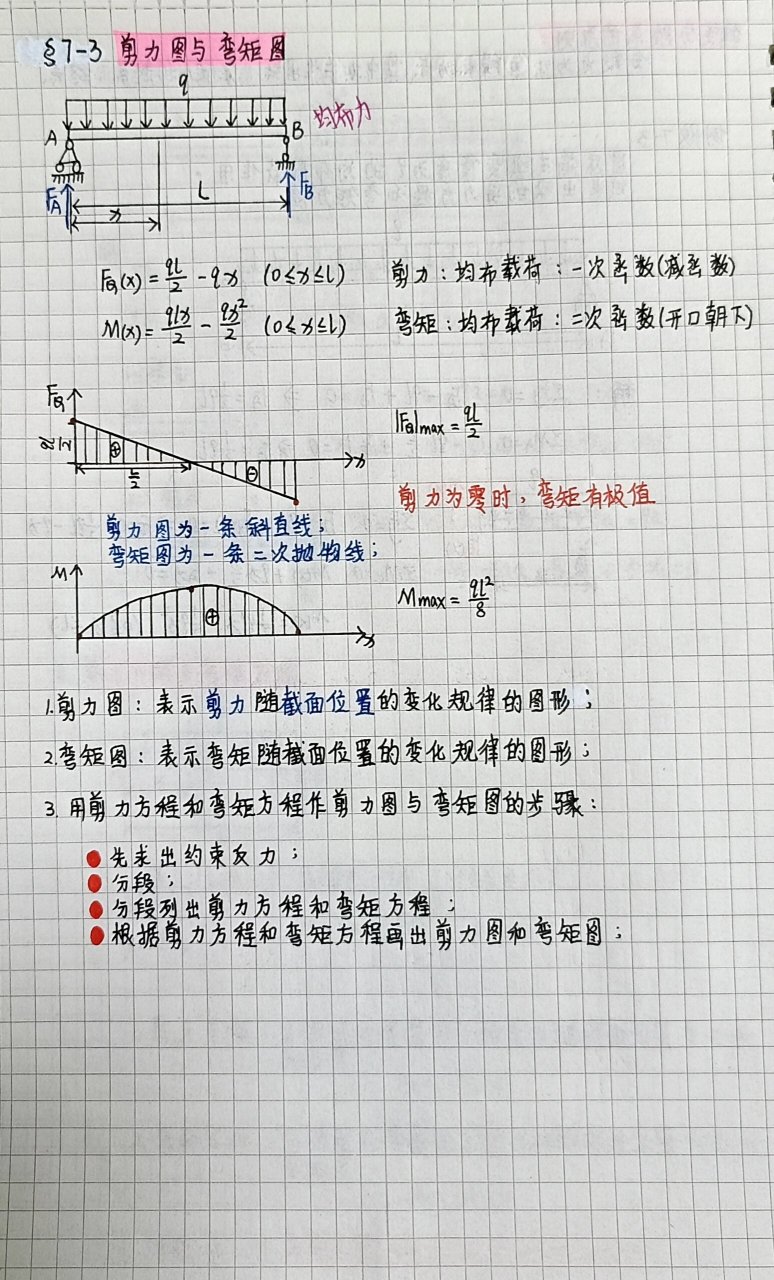 §7-3 剪力图与弯矩图
q
A
B
均布力
F_A
F_B
L
x
F_Q(x) = \frac{ql}{2} - qx (0≤x≤l)
剪力:均布载荷:一次函数(减函数)
M(x) = \frac{qlx}{2} - \frac{qx^2}{2} (0≤x≤l)
弯矩:均布载荷:二次函数(开口朝下)
F_Q
\frac{ql}{2}
⊕
\frac{L}{2}
⊖
x
|F_Q|max = \frac{ql}{2}
剪力为零时,弯矩有极值
剪力图为一条斜直线;
弯矩图为一条二次抛物线;
M
⊕
x
Mmax = \frac{ql^2}{8}
1.剪力图:表示剪力随截面位置的变化规律的图形;
2.弯矩图:表示弯矩随截面位置的变化规律的图形;
3.用剪力方程和弯矩方程作剪力图与弯矩图的步骤:
● 先求出约束反力;
● 分段;
● 分段列出剪力方程和弯矩方程;
● 根据剪力方程和弯矩方程画出剪力图和弯矩图;